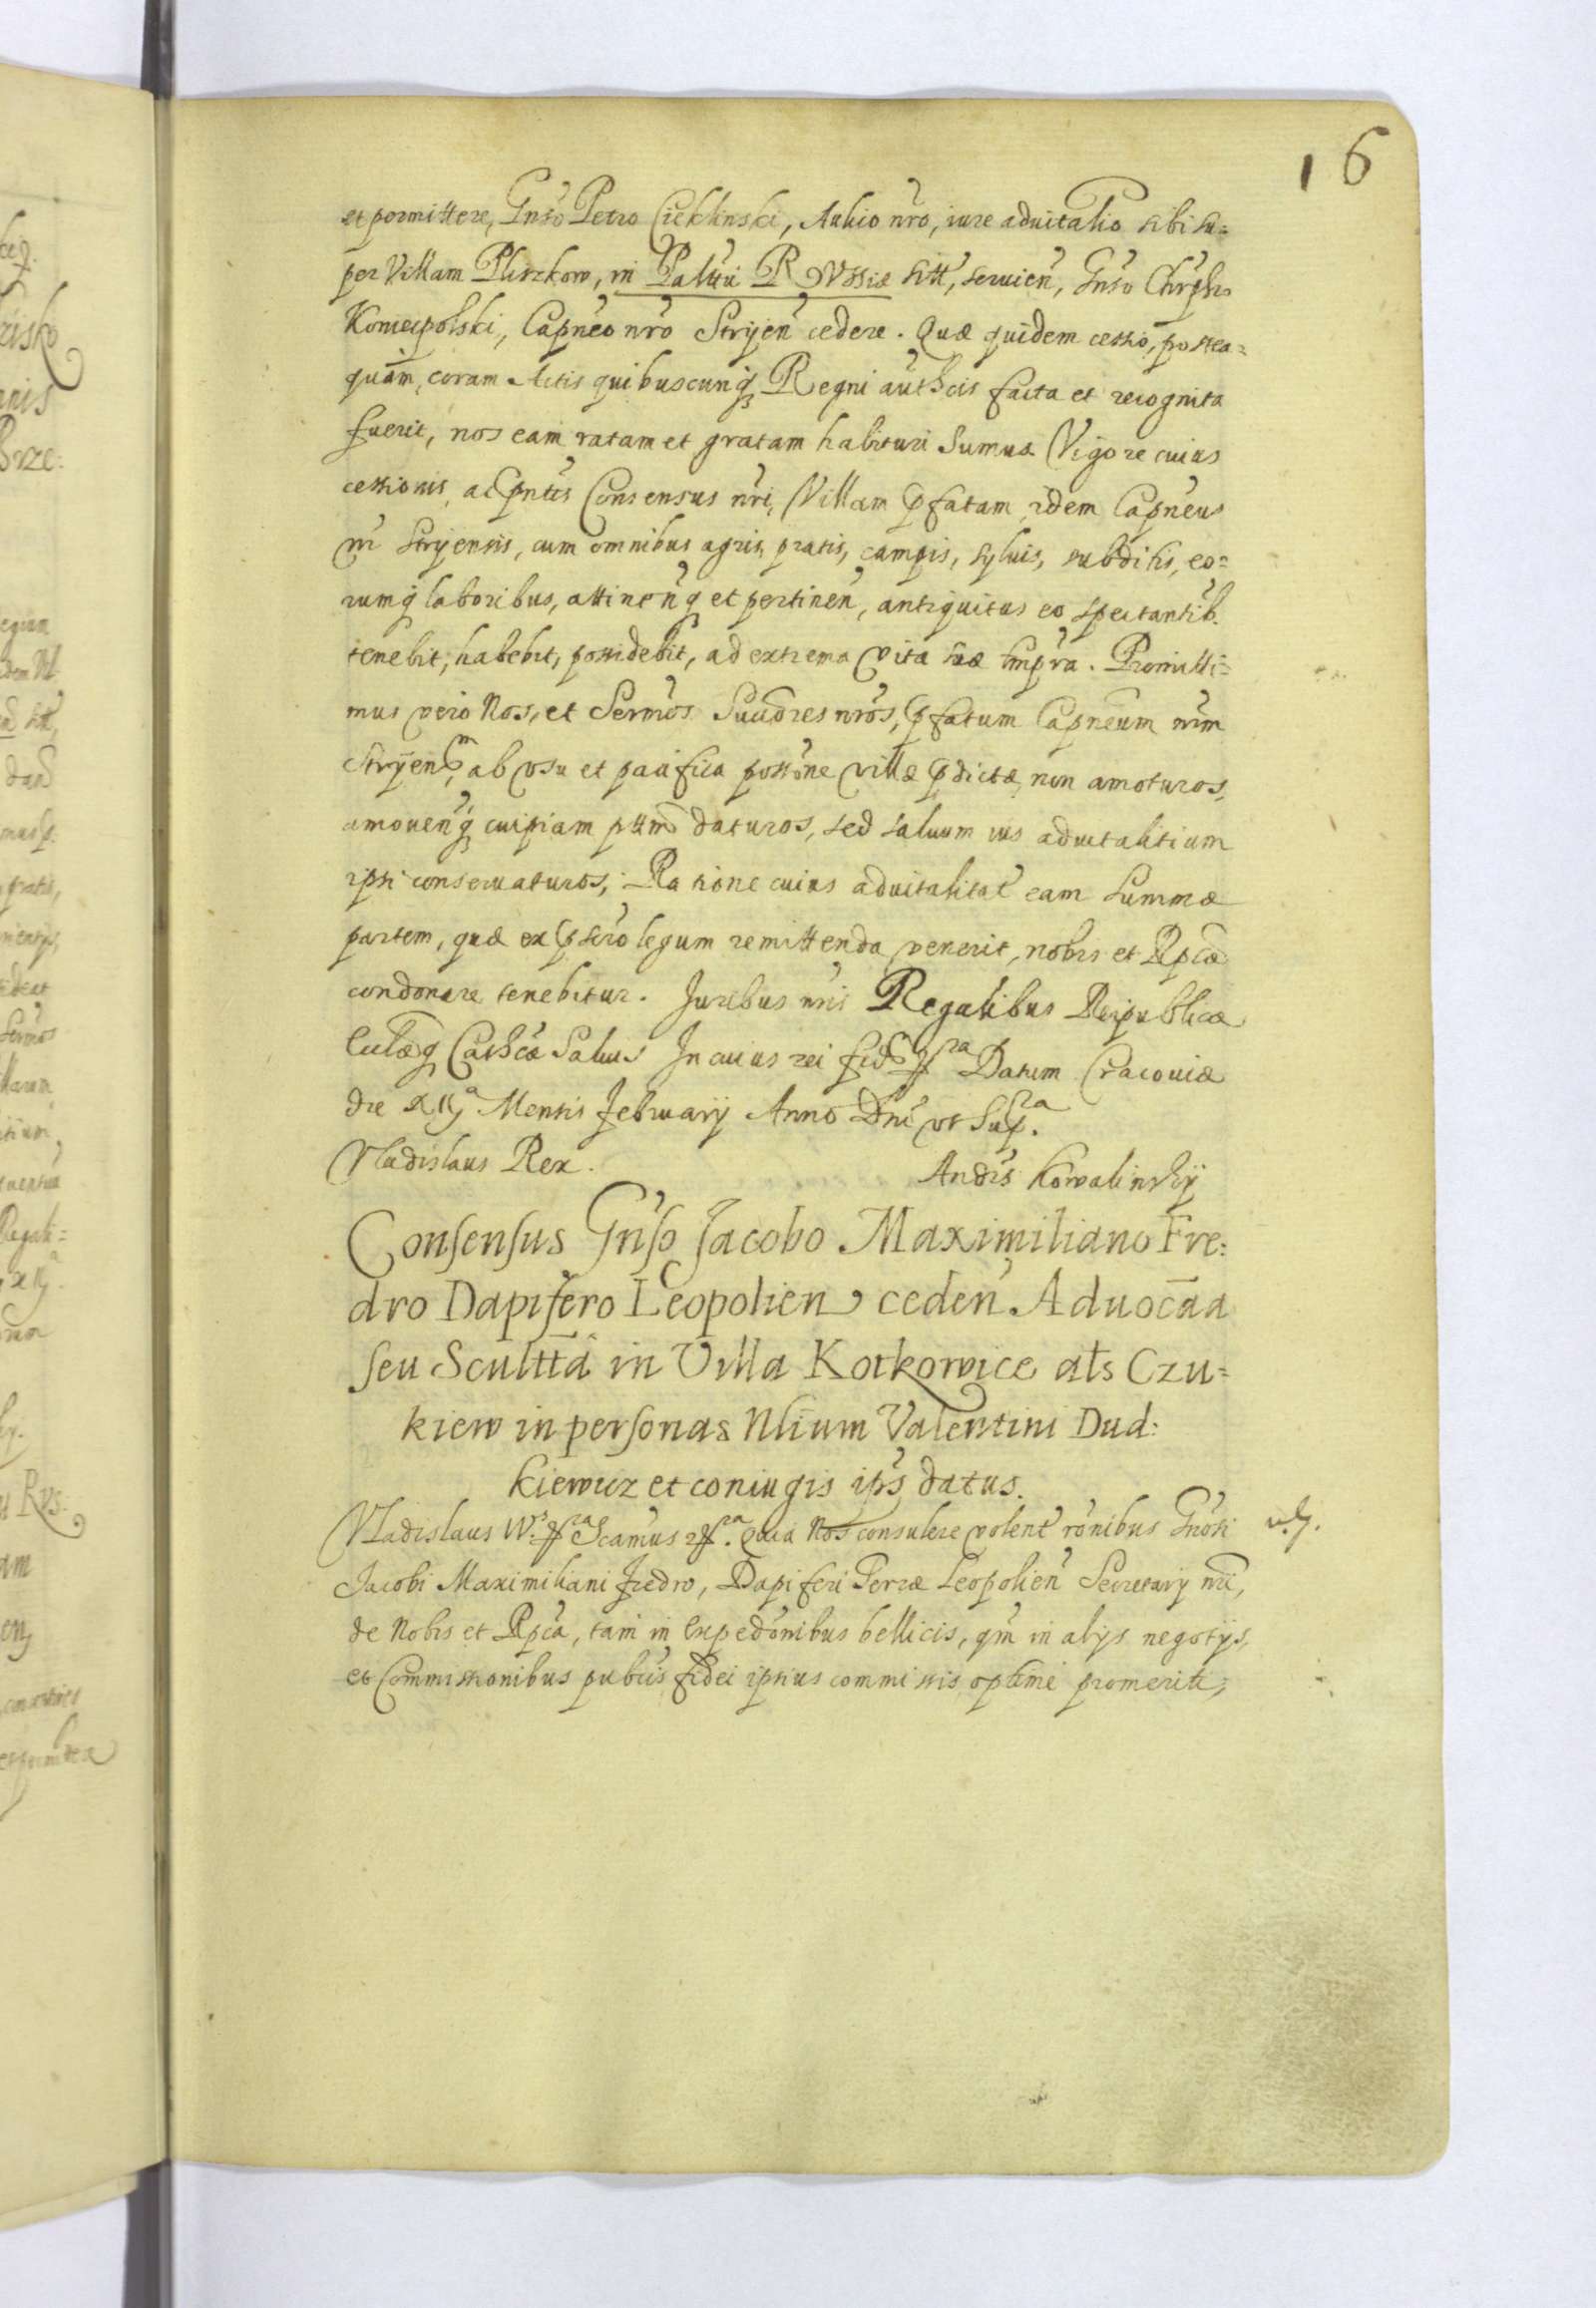 16
et permittere, Gnso Petro Cieklinski, Aulico nro, iure aduitalio sibi su=
per Villam Pliszkow, in Palttu Russiæ sitt, seruien, Gnso Chrphro
Koniecpolski, Capneo nro Stryen cedere. Quæ quidem cessio, postea=
quam, coram Actis quibuscunq Regni authcis facta et recognita
fuerit, nos eam ratam et gratam habituri sumus Vigore cuius
cessionis, ac pntis Consensus nri, Villam pfatam idem Capneus
nr Stryensis, cum omnibus agris, pratis, campis, syluis, subditis, eo=
rumq laboribus, attinenq et pertinen, antiquitus eo spectantib.
tenebit, habebit, possidebit, ad extrema vitæ suæ tmpra. Promitti=
mus vero Nos, et Sermos Succres nros, pfatum Capneum nrm
Stryensem, ab vsu et pacifica possone villæ pdictæ, non amoturos,
amouenq cuipiam pttm daturos, sed saluum ius aduitalitium
ipsi conseruaturos; Ratione cuius aduitalitat eam summæ
partem, quæ ex pscro legum remittenda venerit, nobis et Rpcæ
condonare tenebitur. Juribus nris Regalibus Reipublicæ
Ecclæq Cathcæ Saluis In cuius rei fid. Datum Cracouiæ
die XIIJa Mensis February Anno Dni vt supra.
Vladislaus Rex.
Andrs Kowalinsky
Consensus Gnso Jacobo Maximiliano Fre:
dro Dapifero Leopolien ceden Aduocaa
seu Scultta in Villa Kotkowice als Czu=
kiew in personas Nlium Valentini Dud:
kiewicz et coniugis ips datus.
Vladislaus IV.s &ra Scamus &ra. Quia Nos consulere volent ronibus Gnosi
Jacobi Maximiliani Fredro, Dapiferi Terræ Leopolien Secretary nri,
de Nobis et Rpca, tam in Expedonibus bellicis, qm in alys negotys,
et Commissionibus publis fidei ipsius commissis optime promeriti;